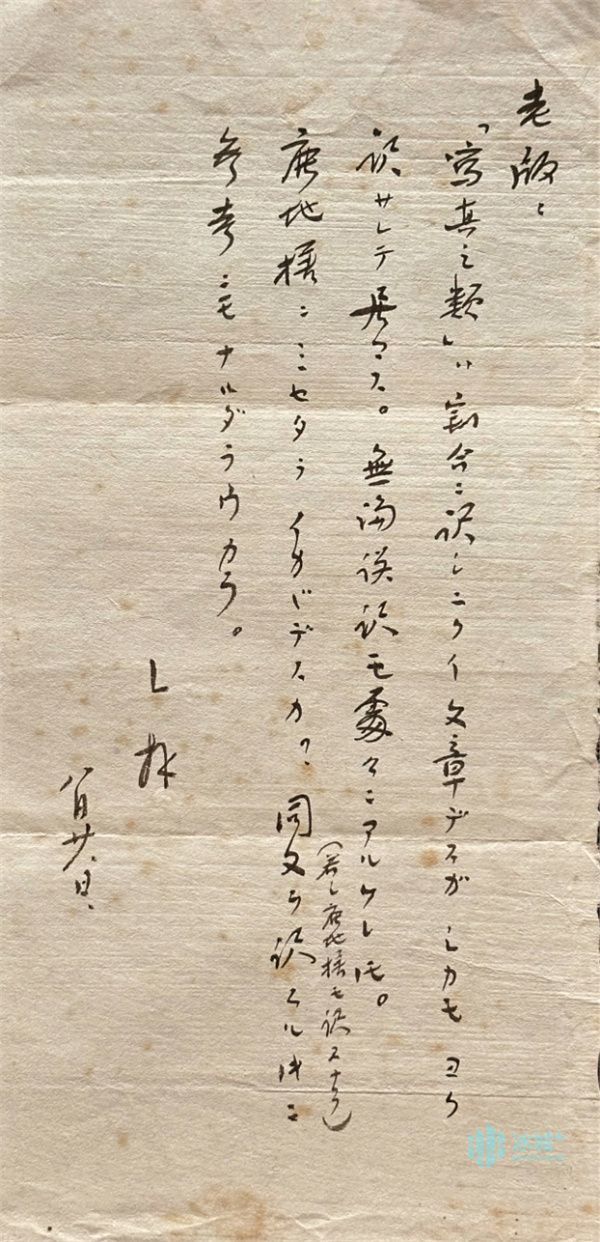 老版：
「寫真之類」ハ割合ニ訳シニクイ文章デスガ シカモ ヨク
訳サレテ居マス。無論誤訳モ處々ニアルケレドモ。
（若シ鹿地様モ訳スナラ）
鹿地様ニミセタラ イカガデスカ？ 同文ヲ訳スル時ニ
参考ニモナルダラウカラ。
L 拝
八月廿 日